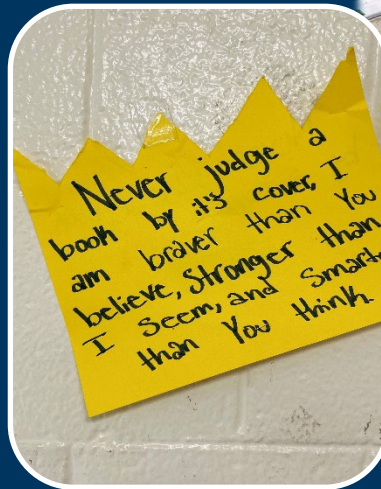 Never judge a
book by it's cover, I
am braver than You
believe, Stronger than
I Seem, and Smart
than You think.